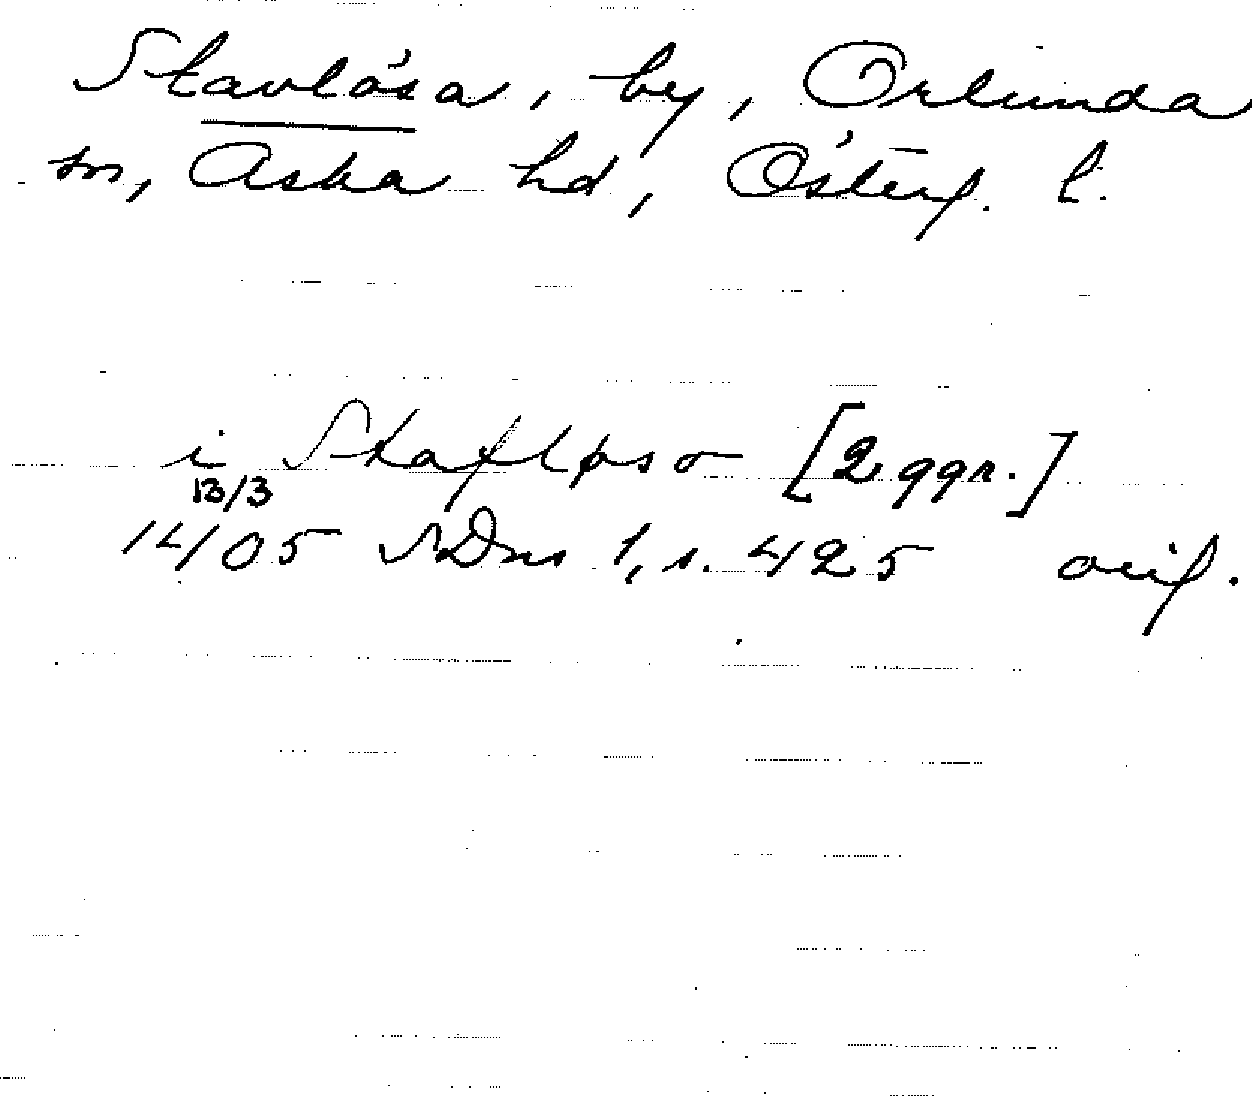 Stavlösa, by, Örlunda
sn, Aska hd, Österg. l.
i Stafløso [2 ggr.]
13/3
1405 SDns 1, s. 425 orig.